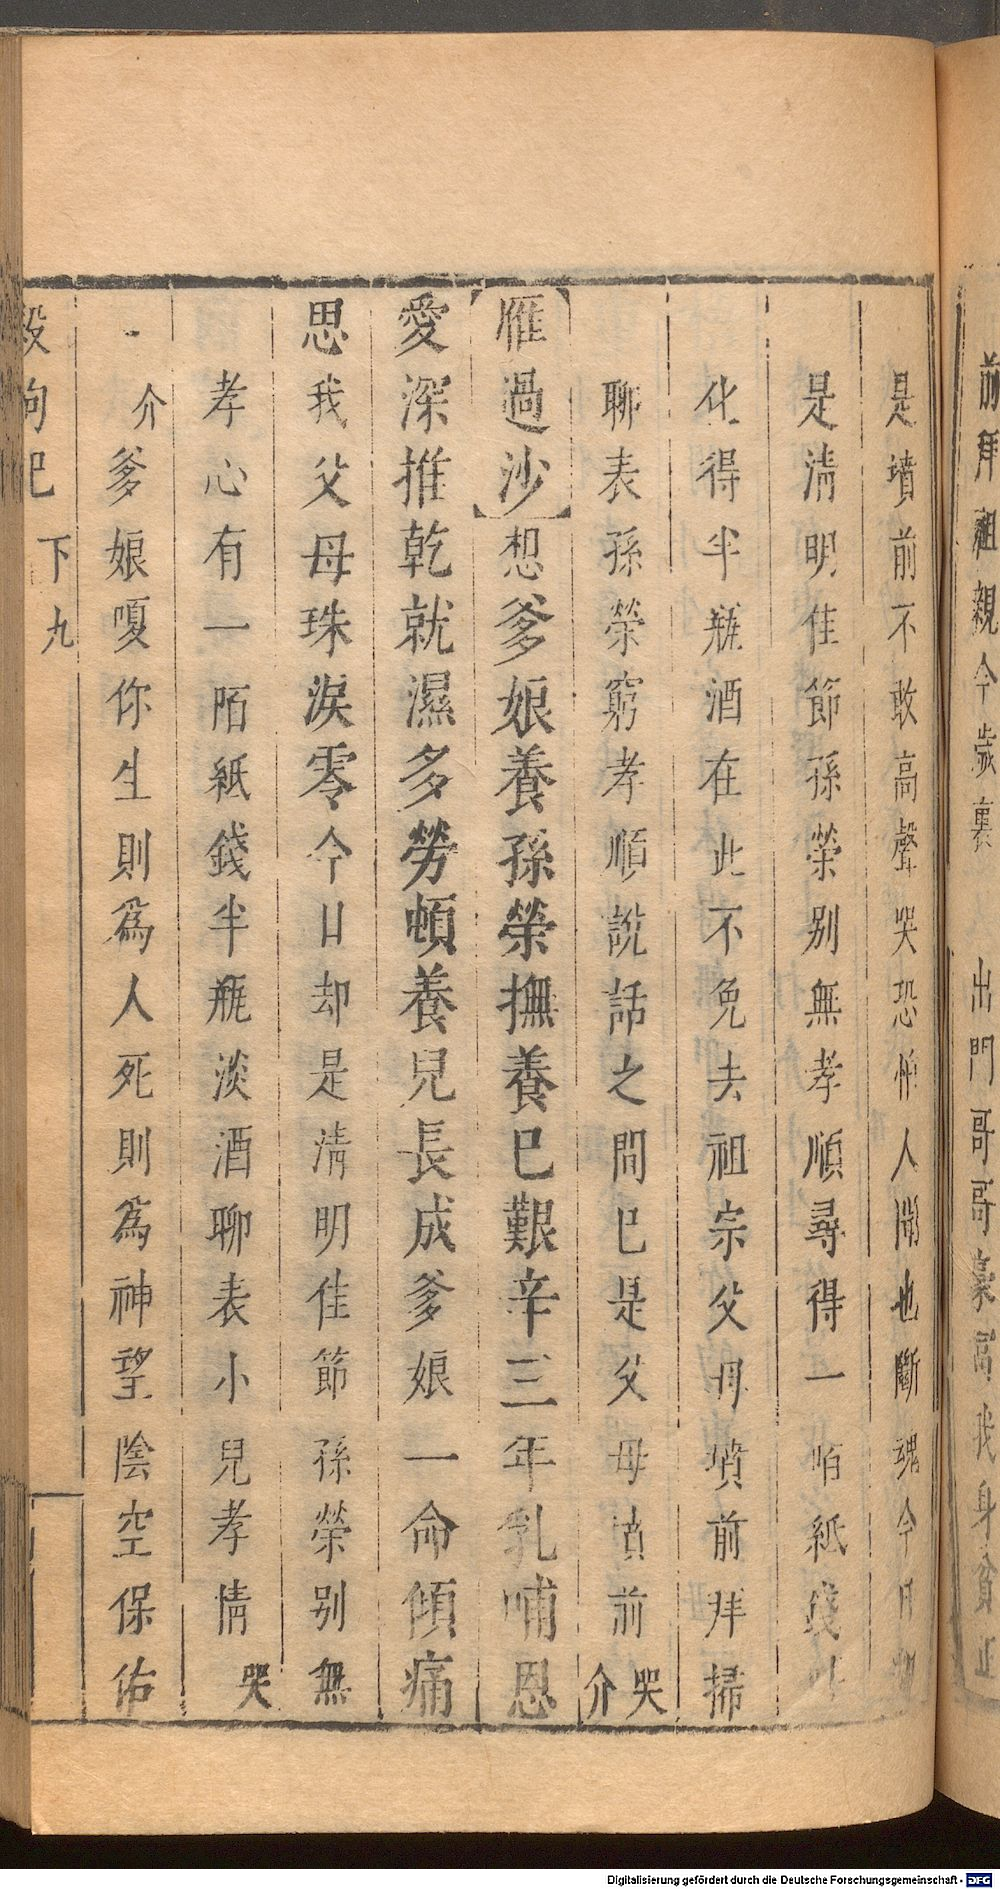 前拜祖親今歲裏
出門哥哥豪富我身貧
是墳前不敢高聲哭恐怕人聞也斷魂今日
是清明佳節孫榮別無孝順尋得一陌紙錢
化得半瓶酒在此不免去祖宗父母墳前拜掃
聊表孫榮窮孝順說話之間已是父母墳前哭介
雁過沙想爹娘養孫榮撫養已艱辛三年乳哺恩
愛深推乾就濕多勞頓養兒長成爹娘一命傾痛
思我父母珠淚零今日却是清明佳節孫榮別無
孝心有一陌紙錢半瓶淡酒聊表小兒孝情哭
介爹娘嗄你生則為人死則為神望陰空保佑
殺狗巳 下 九
Digitalisierung gefördert durch die Deutsche Forschungsgemeinschaft - DFG